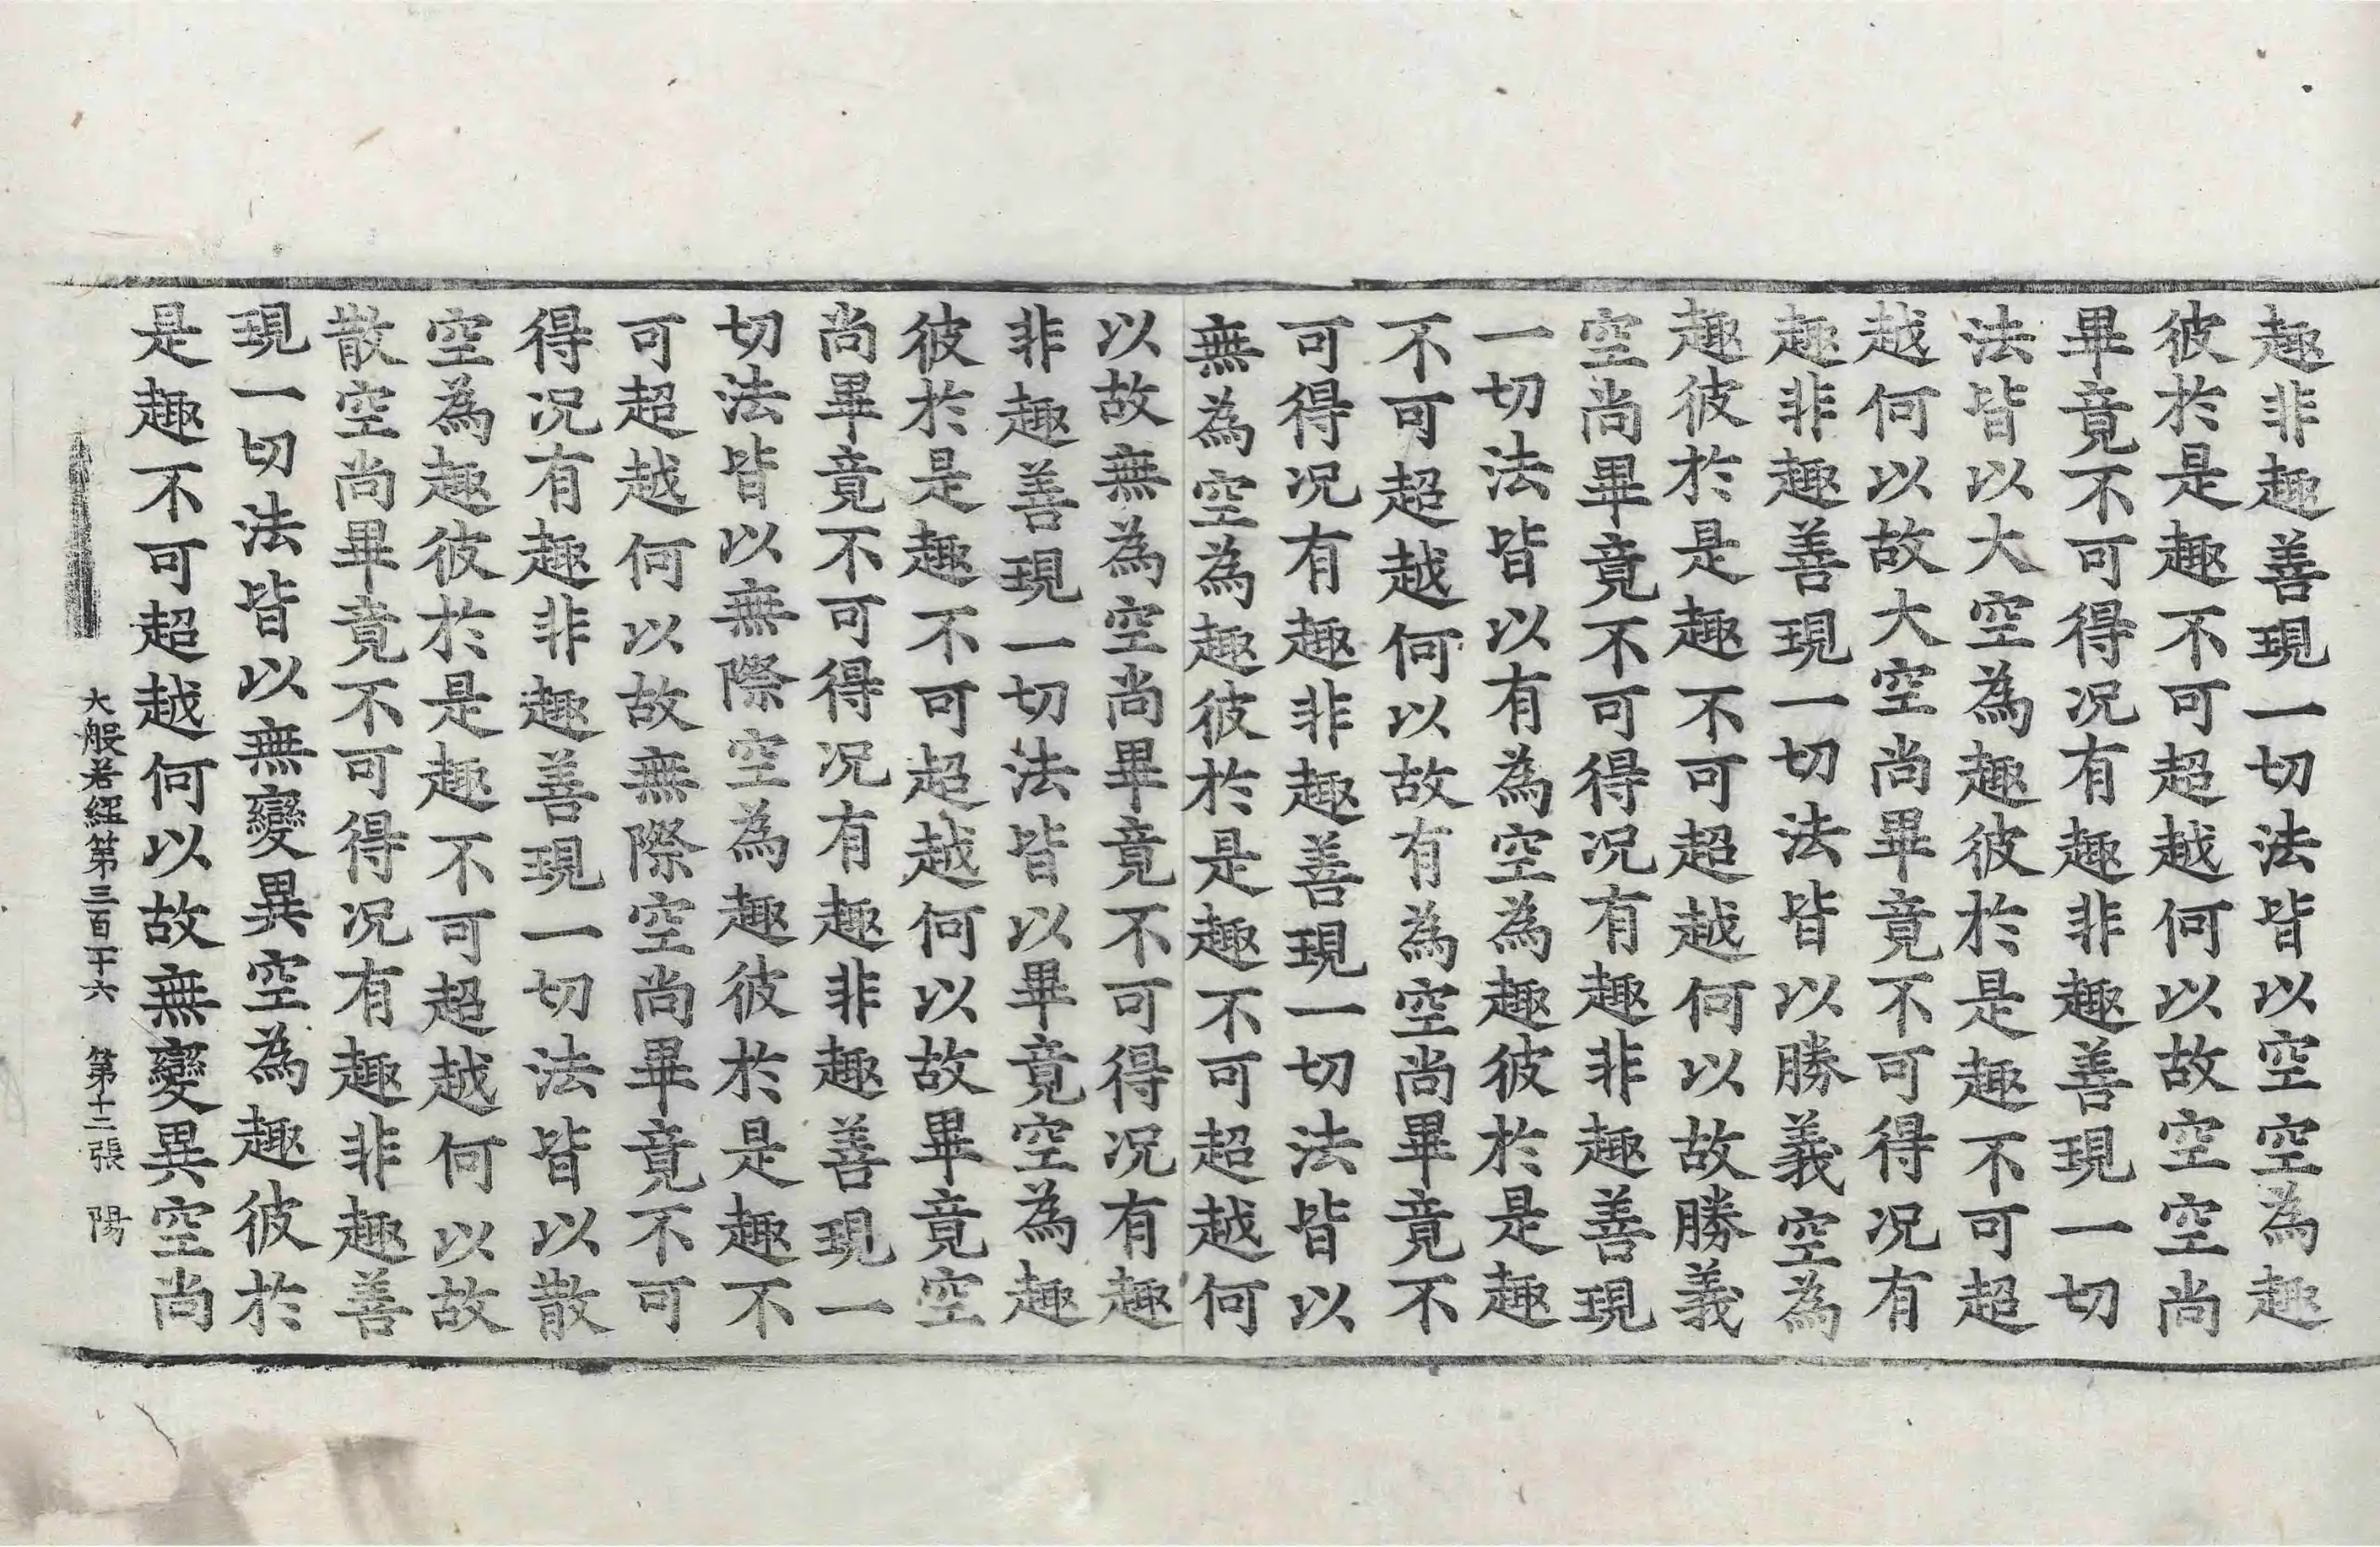 趣非趣善現一切法皆以空空為趣
彼於是趣不可超越何以故空空尚
畢竟不可得况有趣非趣善現一切
法皆以大空為趣彼於是趣不可超
越何以故大空尚畢竟不可得况有
趣非趣善現一切法皆以勝義空為
趣彼於是趣不可超越何以故勝義
空尚畢竟不可得况有趣非趣善現
一切法皆以有為空為趣彼於是趣
不可超越何以故有為空尚畢竟不
可得况有趣非趣善現一切法皆以
無為空為趣彼於是趣不可超越何
以故無為空尚畢竟不可得况有趣
非趣善現一切法皆以畢竟空為趣
彼於是趣不可超越何以故畢竟空
尚畢竟不可得况有趣非趣善現一
切法皆以無際空為趣彼於是趣不
可超越何以故無際空尚畢竟不可
得况有趣非趣善現一切法皆以散
空為趣彼於是趣不可超越何以故
散空尚畢竟不可得况有趣非趣善
現一切法皆以無變異空為趣彼於
是趣不可超越何以故無變異空尚
大般若經第三百十六 第十二張 陽